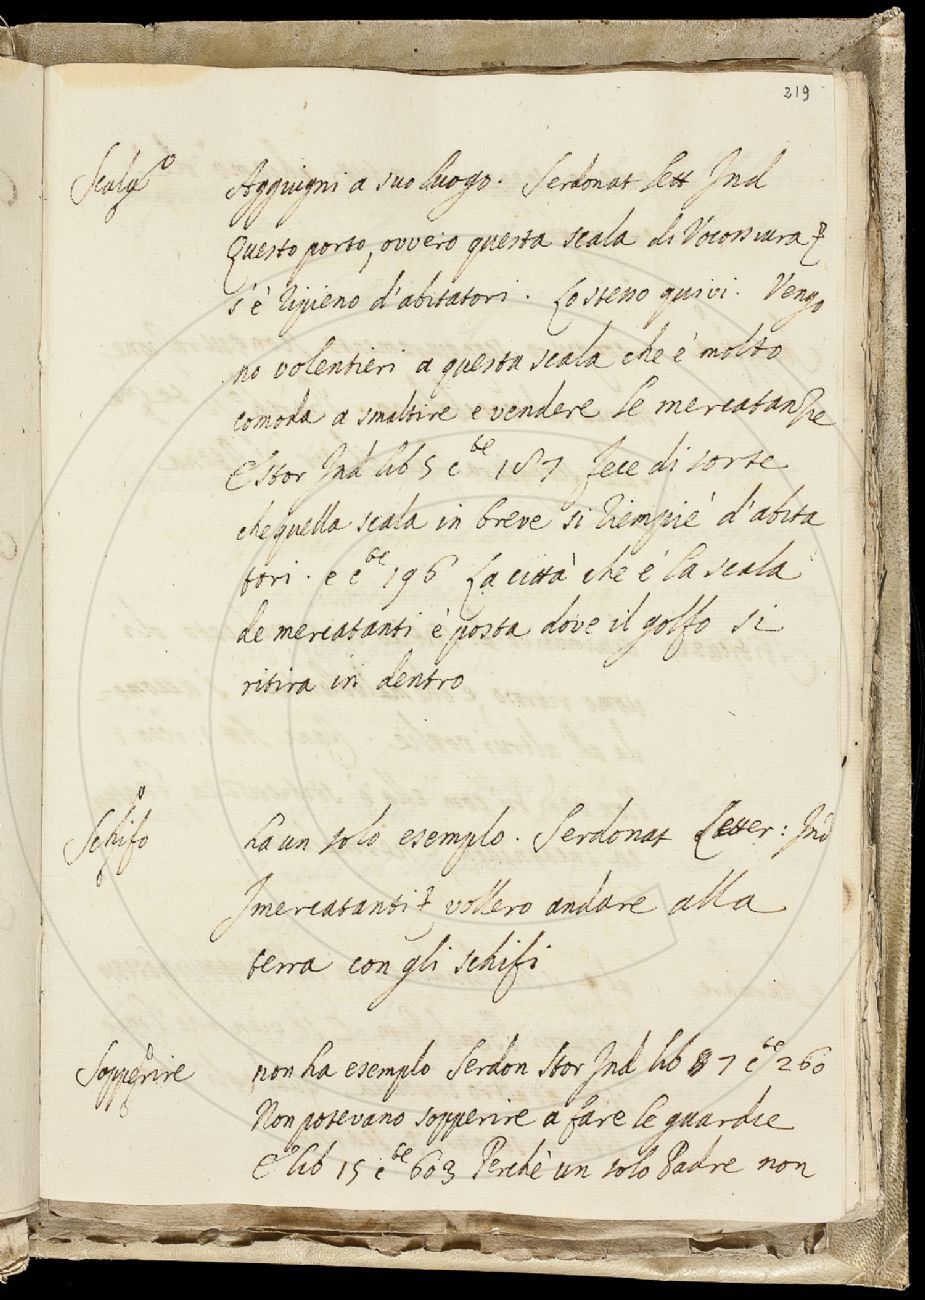 219
Scala Aggiugni a suo luogo. Serdonat Lett Ind
Questo porto, ovvero questa scala di
s'è ripieno d'abitatori. Lo stesso quivi. Vengo
no volentieri a questa scala che è molto
comoda a smaltire e vendere le mercatanzie
E Stor Ind lib 5 c te 187 fece di sorte
che quella scala in breve si riempiè d'abita
tori. e c te 196 La città che è la scala
de mercatanti è posta dove il golfo si
ritira in dentro
Schifo ha un solo esempio. Serdonat Letter: Ind
I mercatanti vollero andare alla
terra con gli schifi
Sopperire non ha esempio Serdon Stor Ind lib 7 c te 260
Non potevano sopperire a fare le guardie
E lib 15 c te 603 Perchè un solo Padre non